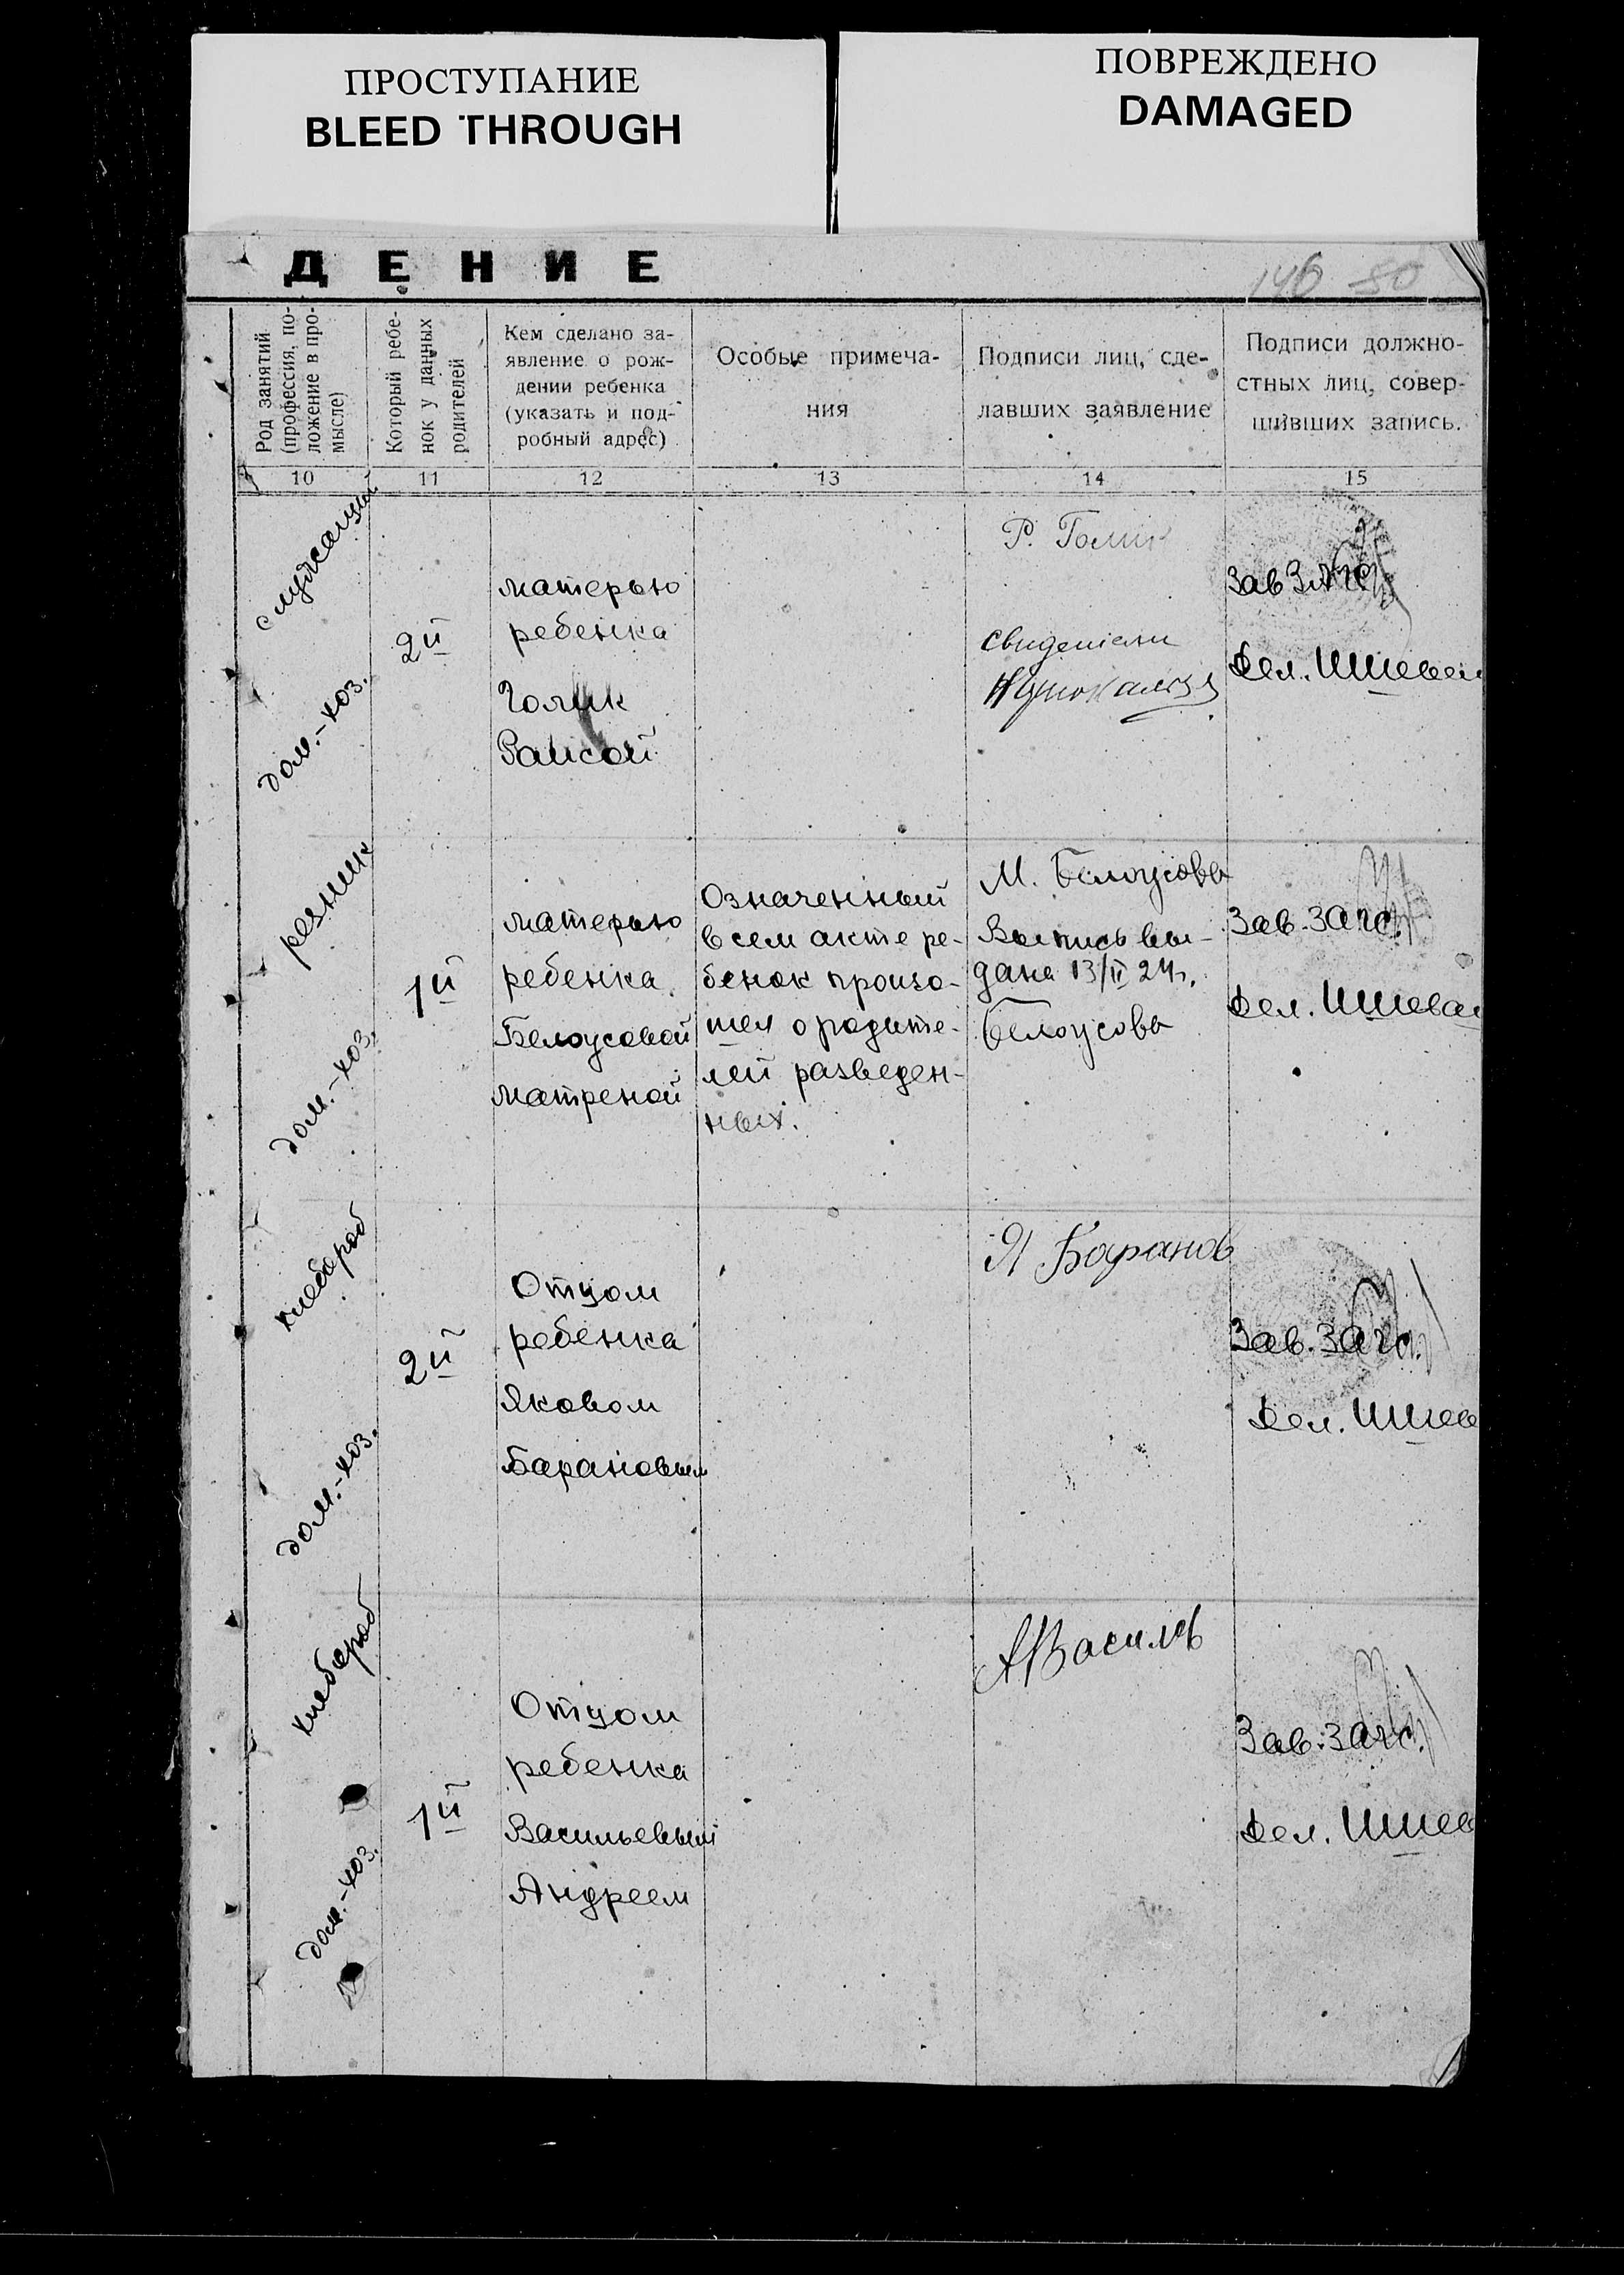 ПРОСТУПАНИЕ
BLEED THROUGH
ПОВРЕЖДЕНО
DAMAGED
ДЕНИЕ
146 80
Род занятий
(профессия, по-
ложение в про-
мысле)
Который ребе-
нок у данных
родителей
Кем сделано за-
явление о рож-
дении ребенка
(указать и под-
робный адрес)
Особые примеча-
ния
Подписи лиц, сде-
лавших заявление
Подписи должно-
стных лиц, совер-
шивших запись.
10
11
12
13
14
15
служащий
дом.-хоз.
2й
матерью
ребенка
Голик
Раисой
Р. Голик
свидетели
Зав Загс
Дел.
резник
дом.-хоз.
1й
матерью
ребенка
Белоусовой
Матреной
Означенный
в сем акте ре-
бенок произо-
шел о родите-
лей разведен-
ных.
М. Белоусова
Выпись вы-
дана 13/II 24г.
Белоусова
Зав. Загс.
Дел.
хлебороб
дом.-хоз.
2й
Отцом
ребенка
Яковом
Барановым
Я Баранов
Зав. Загс.
Дел.
хлебороб
дом.-хоз.
1й
Отцом
ребенка
Васильевым
Андреем
А Василев
Зав. Загс.
Дел.